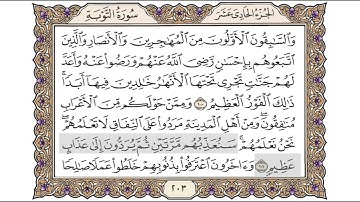 الجزء الحادي عشر
سورة التوبة
وَالسَّابِقُونَ الْأَوَّلُونَ مِنَ الْمُهَاجِرِينَ وَالْأَنصَارِ وَالَّذِينَ
اتَّبَعُوهُم بِإِحْسَانٍ رَّضِيَ اللَّهُ عَنْهُمْ وَرَضُوا عَنْهُ وَأَعَدَّ
لَهُمْ جَنَّاتٍ تَجْرِي تَحْتَهَا الْأَنْهَارُ خَالِدِينَ فِيهَا أَبَدًا
ذَٰلِكَ الْفَوْزُ الْعَظِيمُ ١٠٠ وَمِمَّنْ حَوْلَكُم مِّنَ الْأَعْرَابِ
مُنَافِقُونَ وَمِنْ أَهْلِ الْمَدِينَةِ مَرَدُوا عَلَى النِّفَاقِ لَا تَعْلَمُهُمْ
نَحْنُ نَعْلَمُهُمْ سَنُعَذِّبُهُم مَّرَّتَيْنِ ثُمَّ يُرَدُّونَ إِلَىٰ عَذَابٍ
عَظِيمٍ ١٠١ وَآخَرُونَ اعْتَرَفُوا بِذُنُوبِهِمْ خَلَطُوا عَمَلًا صَالِحًا
٢٠٣